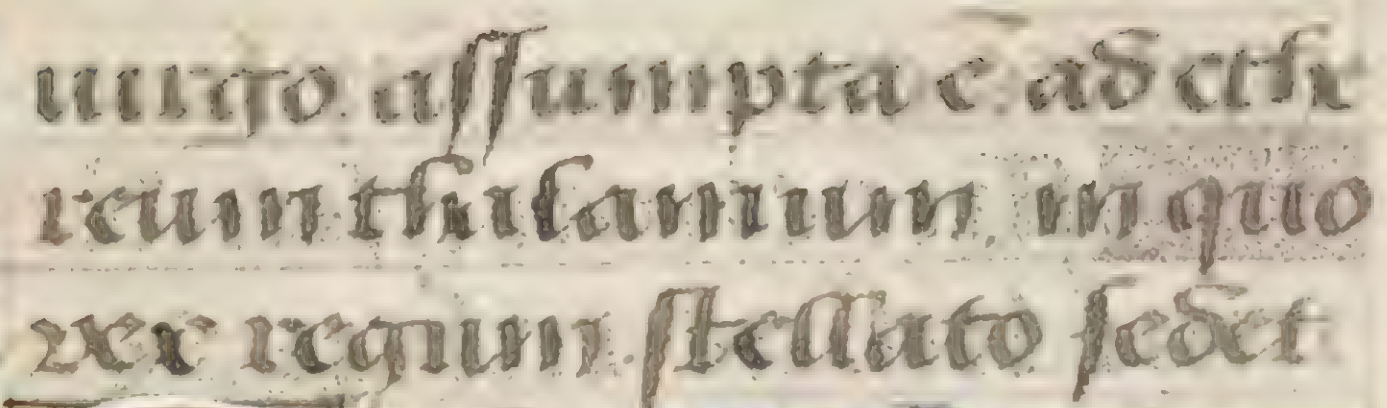 uirgo assumpta ē ad eth
reum thalamum in quo
rex regum stellato sedet